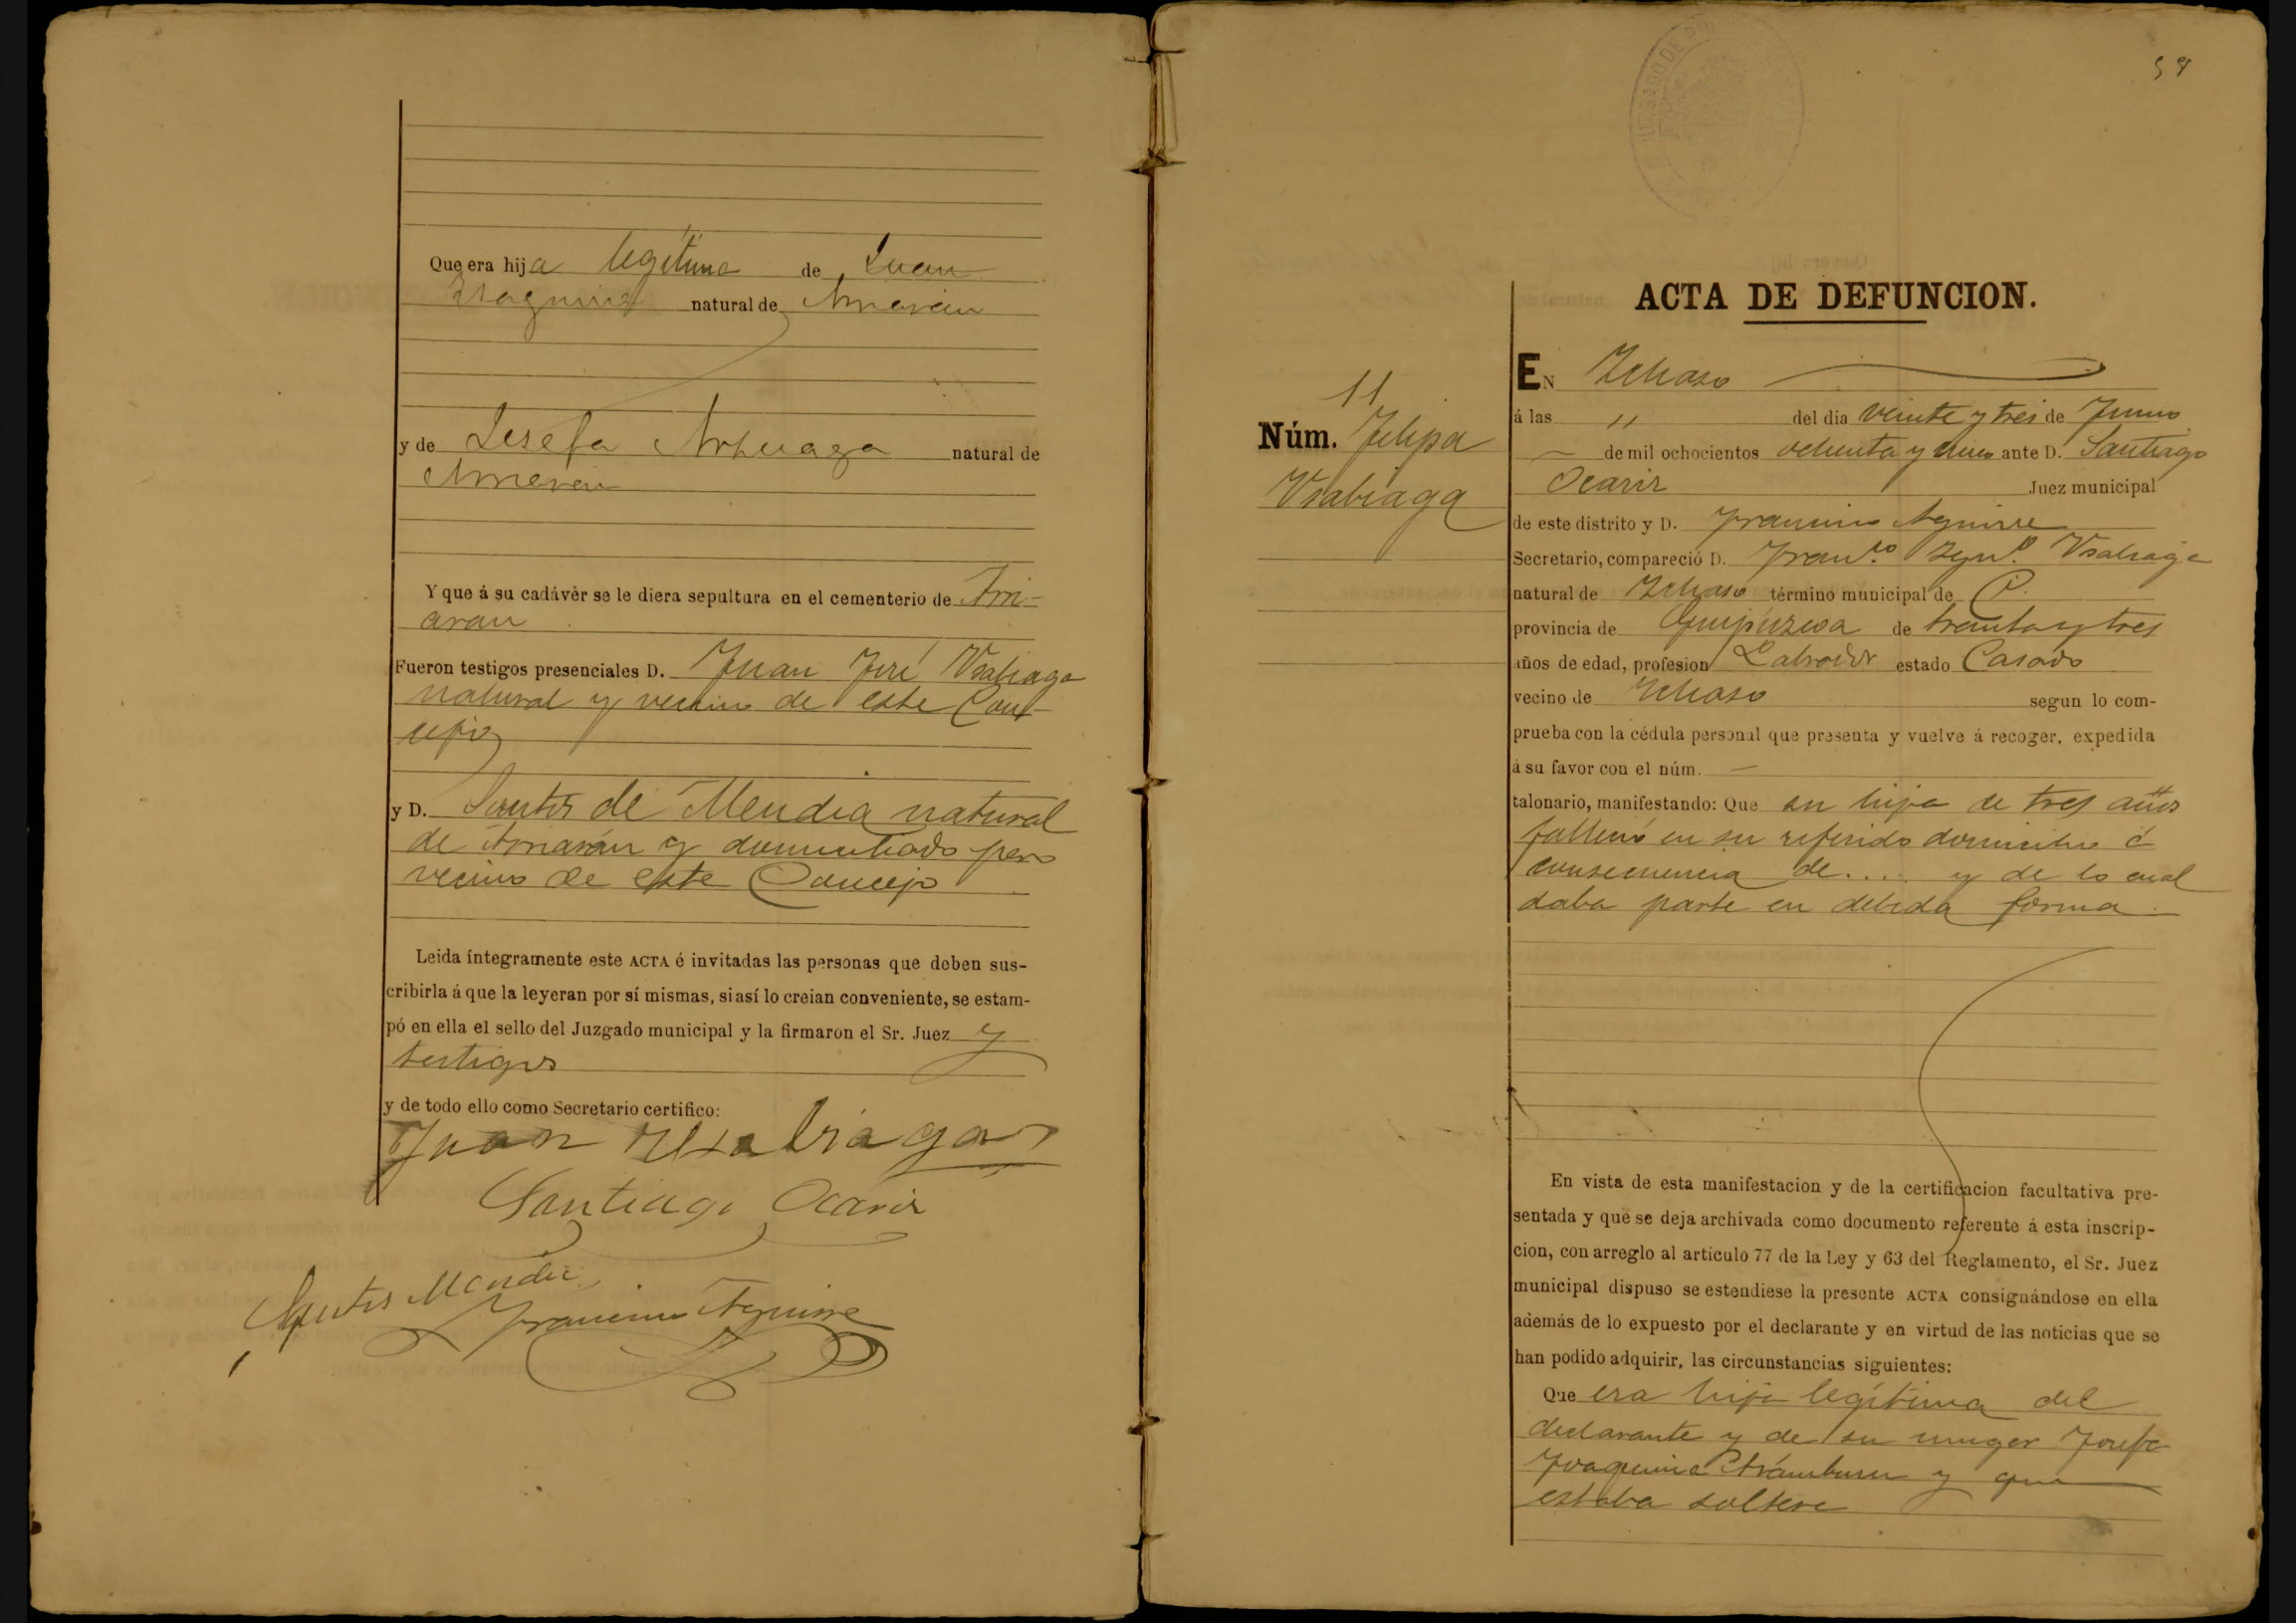 Que era hija legítima de Juan
natural de Amarán
y de Josefa natural de
Amaran
Y que á su cadávèr se le diera sepultura en el cementerio de Am-
aran
Fueron testigos presenciales D. Juan José Vsabiaga
natural y vecino de este Con-
cejo
y D. Santos de Mendia natural
de Amarán y domiciliado pero
vecino de este Concejo
Leida íntegramente este ACTA é invitadas las personas que deben sus-
cribirla á que la leyeran por sí mismas, si así lo creian conveniente, se estam-
pó en ella el sello del Juzgado municipal y la firmaron el Sr. Juez y
testigos
y de todo ello como Secretario certifico:
Juan Usabiaga
Santiago Ocariz
Santos Mendia
Francisco Aguirre
59
ACTA DE DEFUNCION.
11
Núm. Felipa
Vsabiaga
EN Ichaso
á las 11 del dia veinte y tres de Junio
de mil ochocientos ochenta y cinco ante D. Santiago
Ocariz Juez municipal
de este distrito y D. Francisco Aguirre
Secretario, compareció D. Fran.co Ign.o Vsabiaga
natural de Ichaso término municipal de
provincia de Guipúzcoa de treinta y tres
años de edad, profesion Labrador estado Casado
vecino de Ichaso segun lo com-
prueba con la cédula personal que presenta y vuelve á recoger, expedida
á su favor con el núm. —
talonario, manifestando: Que su hija de tres años
falleció en su referido domicilio á
consecuencia de.... y de lo cual
daba parte en debida forma
En vista de esta manifestacion y de la certificacion facultativa pre-
sentada y que se deja archivada como documento referente á esta inscrip-
cion, con arreglo al artículo 77 de la Ley y 63 del Reglamento, el Sr. Juez
municipal dispuso se estendiese la presente ACTA consignándose en ella
además de lo expuesto por el declarante y en virtud de las noticias que se
han podido adquirir, las circunstancias siguientes:
Que era hija legítima del
declarante y de su muger Josefa
Joaquina Aramburu y que
estaba soltera